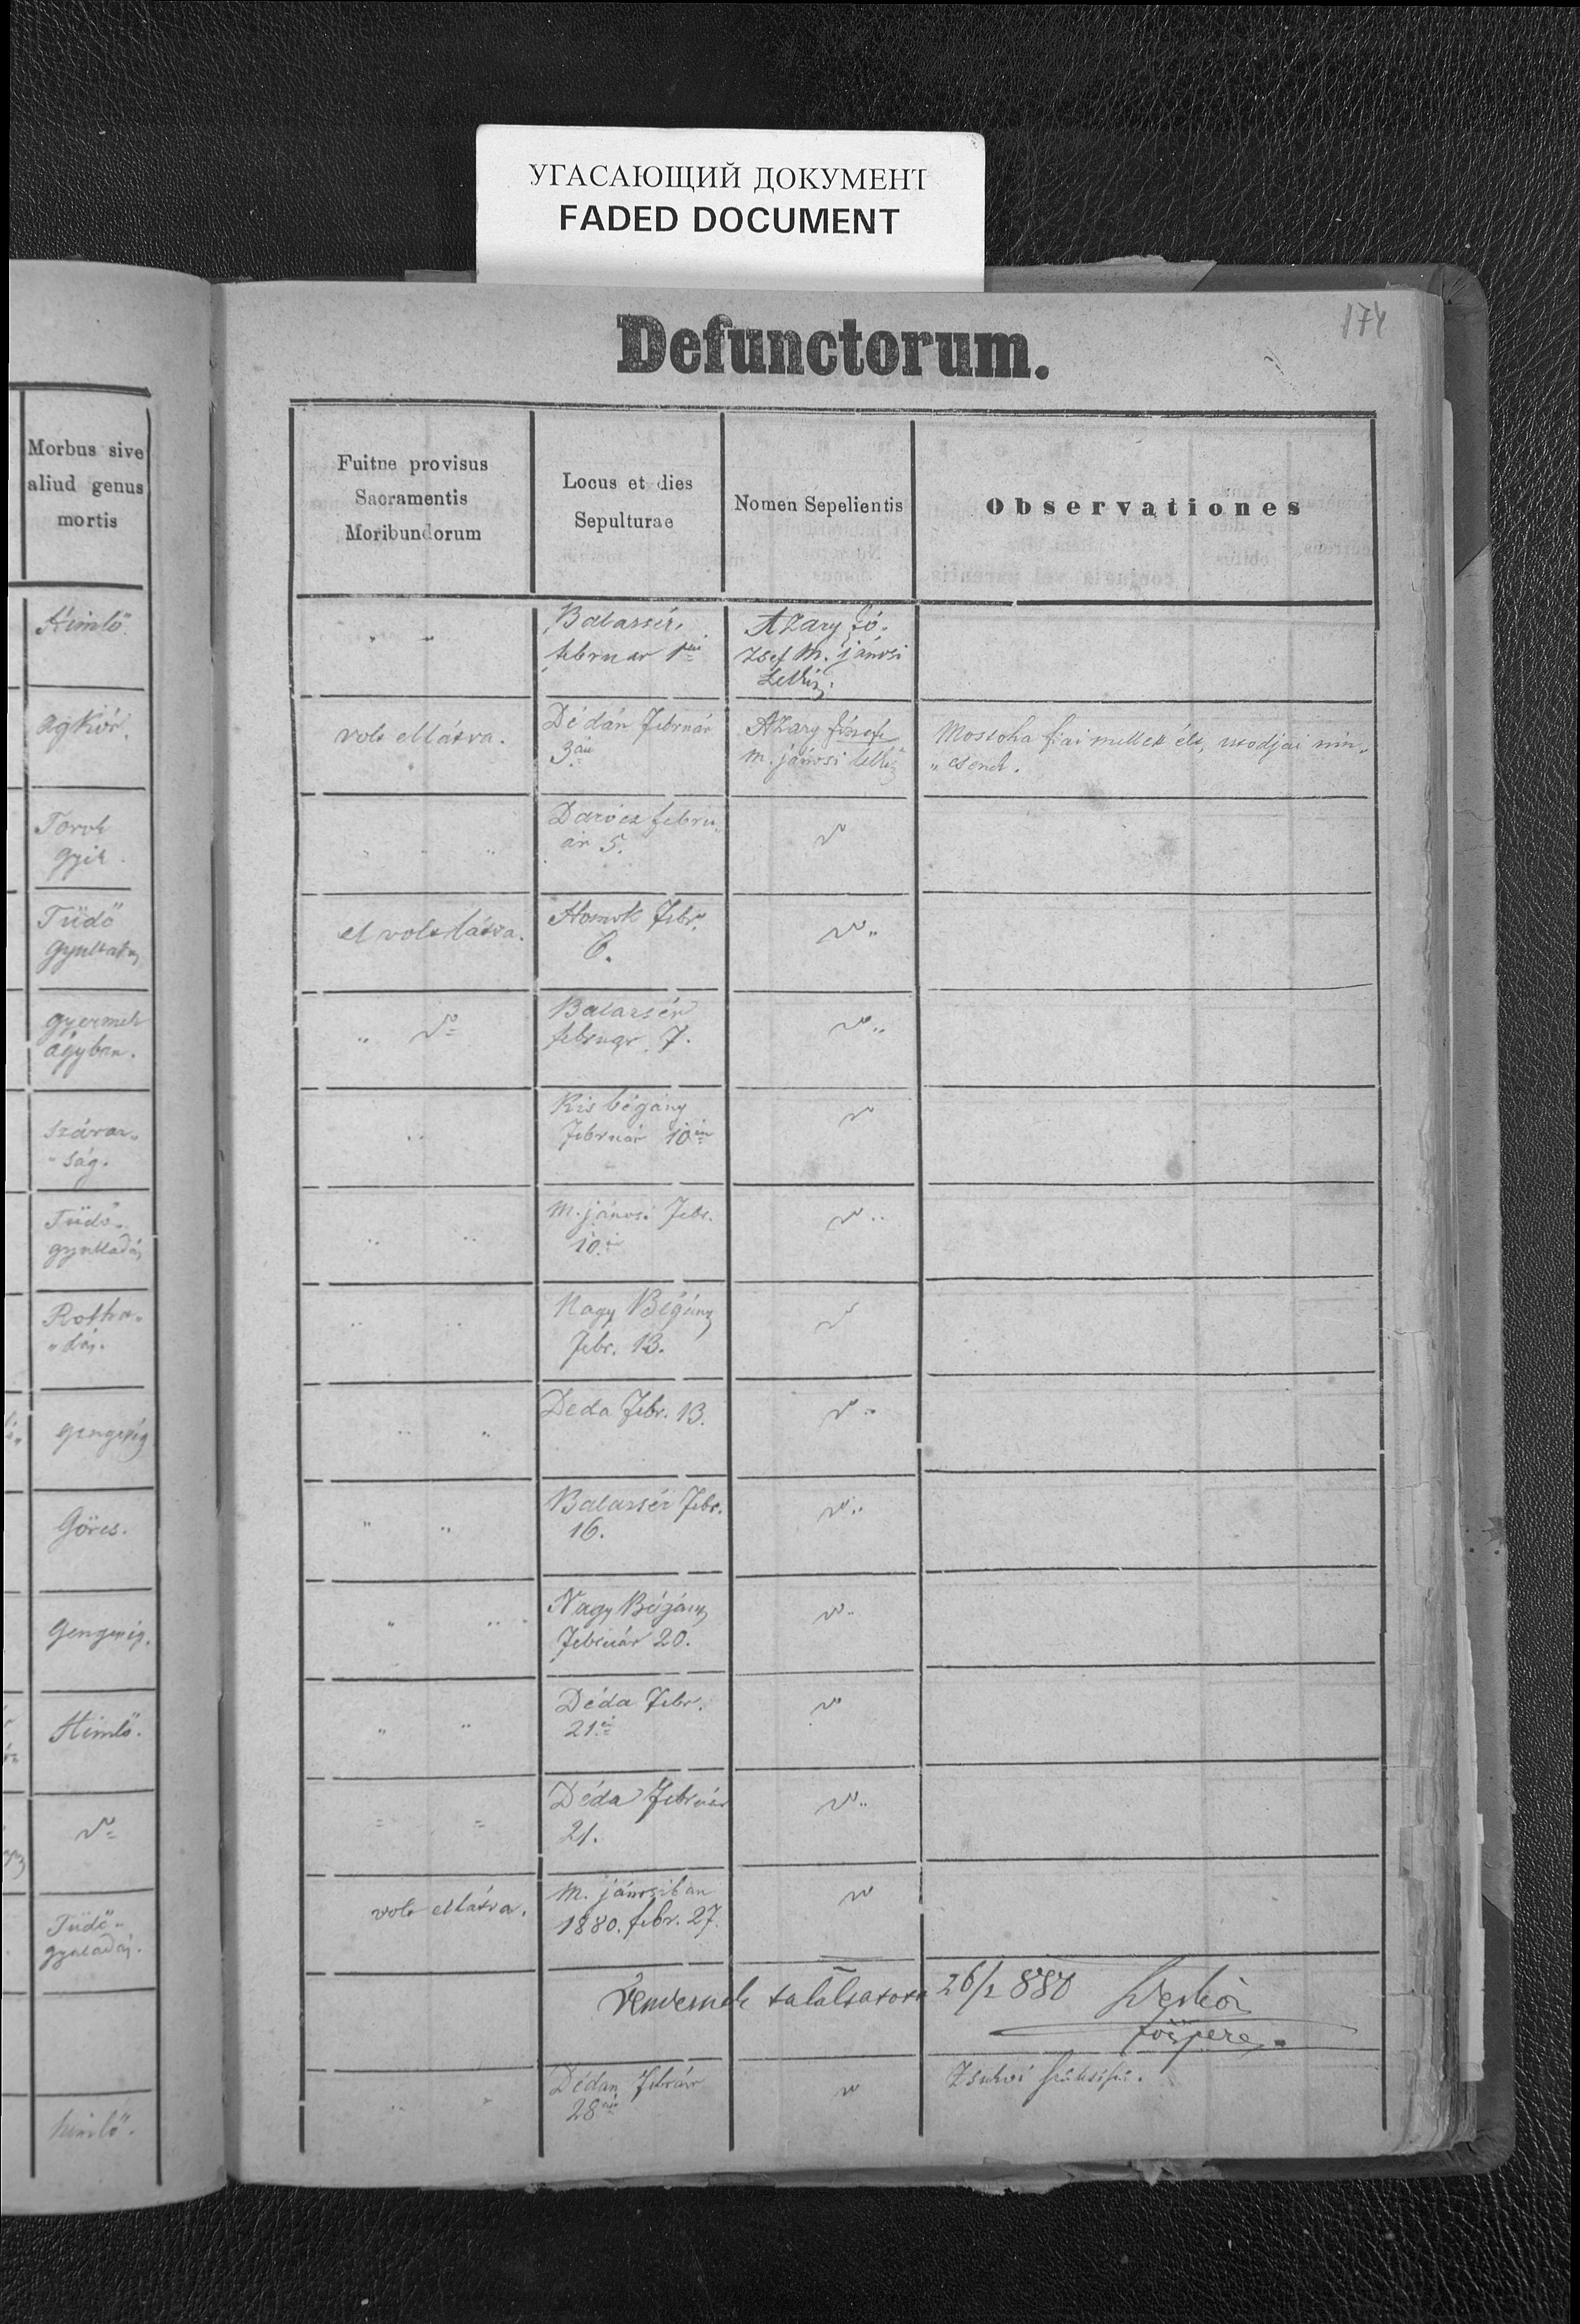 УГАСАЮЩИЙ ДОКУМЕНТ
FADED DOCUMENT
174
Defunctorum.
Morbus sive
aliud genus
mortis
Fuitne provisus
Sacramentis
Moribundorum
Locus et dies
Sepulturae
Nomen Sepelientis
Observationes
Himlő.
" "
Balazsér.
februar 1én
Azary Jó-
zsef m. jánosi
Lelkész
agkór.
volt ellátva.
Dédán február
3án
Azary József
m. jánosi lelkész
Mostoha fiai mellett élt, utódjai nin-
"csenek.
Torok
gyik.
" " "
Darócz febru
ár 5.
Tüdő
gyulladás
el volt látva.
Homok Febr.
6.
gyermek
ágyban.
Balazsér
február 7.
száraz-
"ság.
Kis bégány
Február 10én
Tüdő-
gyulladás
m. jánosi Febr.
10.
Rotha-
"dás.
Nagy Bégány
Febr. 13.
gengeség
Deda Febr. 13.
Görcs.
" "
Balazsér Febr.
16.
Gengeség.
Nagy Bégány
Február 20.
Himlő.
" "
Déda Febr.
21.
Déda Február
21.
Tüdő-
gyuladás.
volt ellátva.
m. jánosiban
1880. febr. 27.
26/2 880
himlő.
Dédán Február
28án